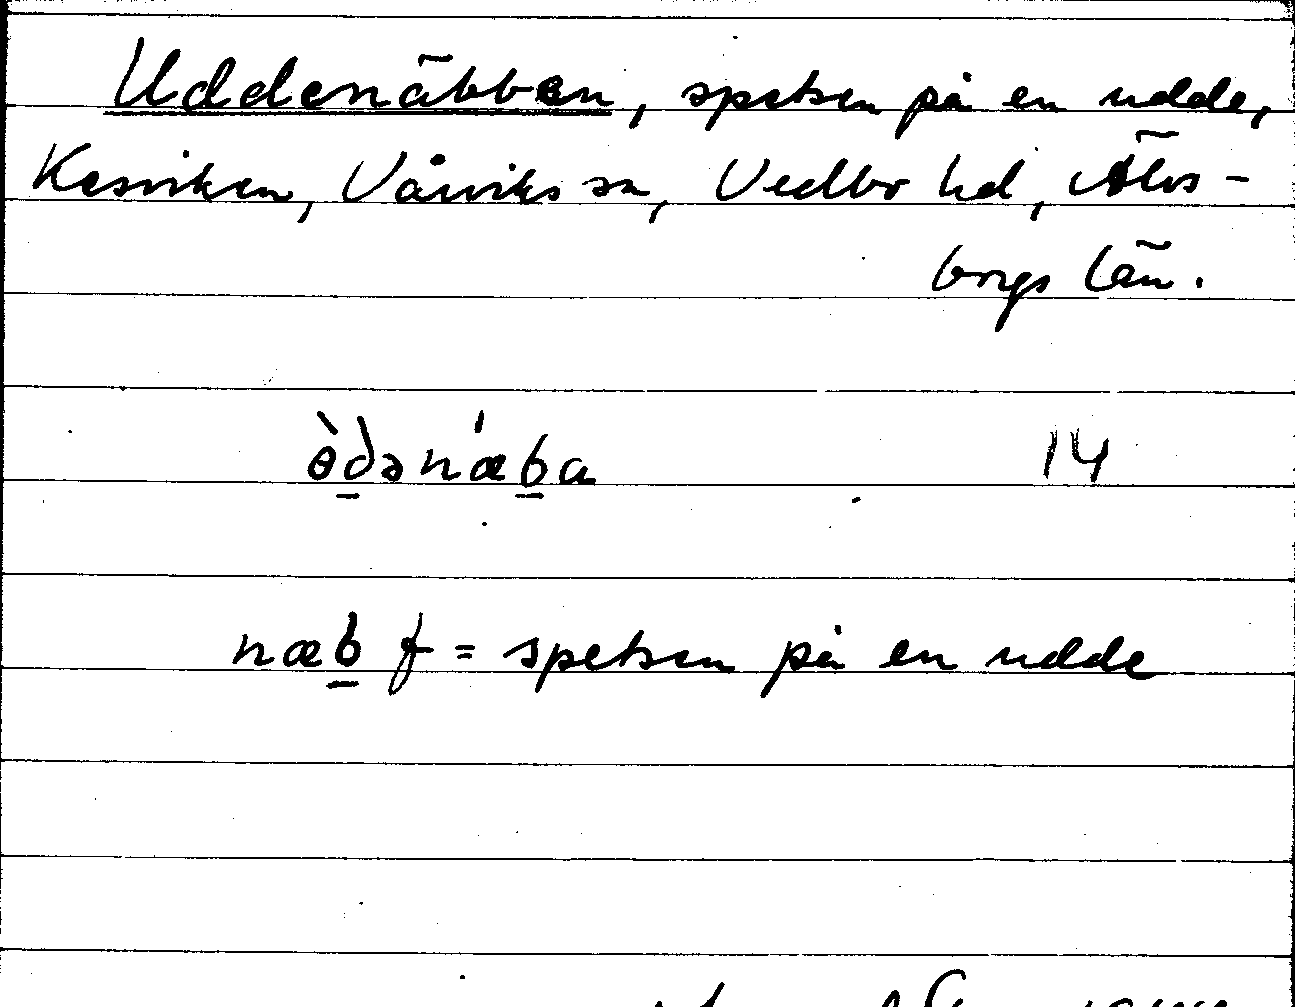 Uddenäbben, spetsen på en udde,
Kesviken, Vårviks sn, Vedbo hd, Älvs-
borgs län.
ɵ̀d̠ənǽb̠a 14
næb̠ f = spetsen på en udde